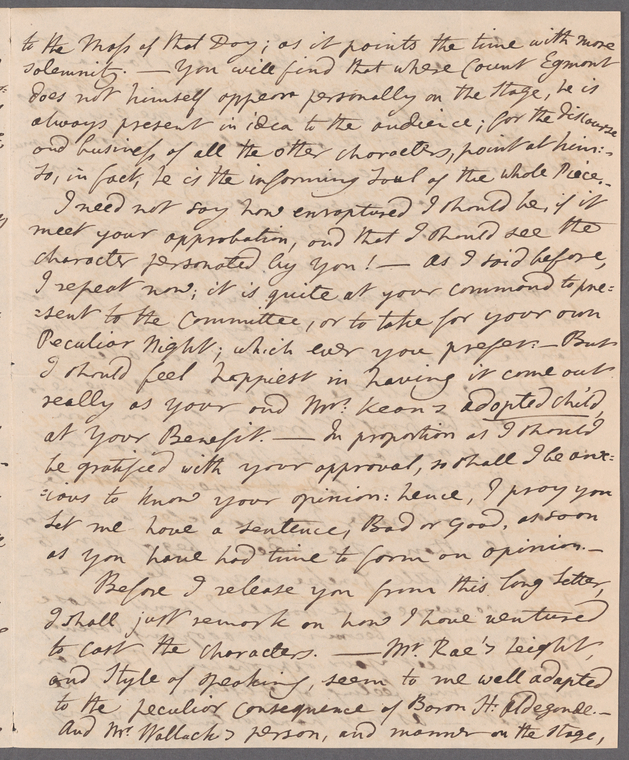 to the Mass of that Day; as it points the time with more
solemnity. — You will find that where Count Egmont
does not himself appear personally on the Stage, he is
always present in idea to the audience; for the discourse
and business of all the other characters, point at him:-
So, in fact, he is the informing Soul of the whole Piece.-
I need not say how enraptured I should be, if it
meet your approbation, and that I should see the
character personated by You! — As I said before,
I repeat now; it is quite at your command to pre=
=sent to the Committee, or to take for your own
Peculiar Night; which ever you prefer. — But
I should feel happiest in having it come out
really as your and Mrs. Kean's adopted child,
at Your Benefit. — In proportion as I should
be gratified with your approval, so shall I be anx=
=ious to know your opinion: hence, I pray you
let me have a sentence, Bad or Good, as soon
as you have had time to form an opinion.—
Before I release you from this long Letter,
I shall just remark on how I have ventured
to cast the characters. — Mr. Rae's height,
and Style of speaking, seem to me well adapted
to the peculiar consequence of Baron Hildegonde.—
And Mr. Wallack's person, and manner on the Stage,